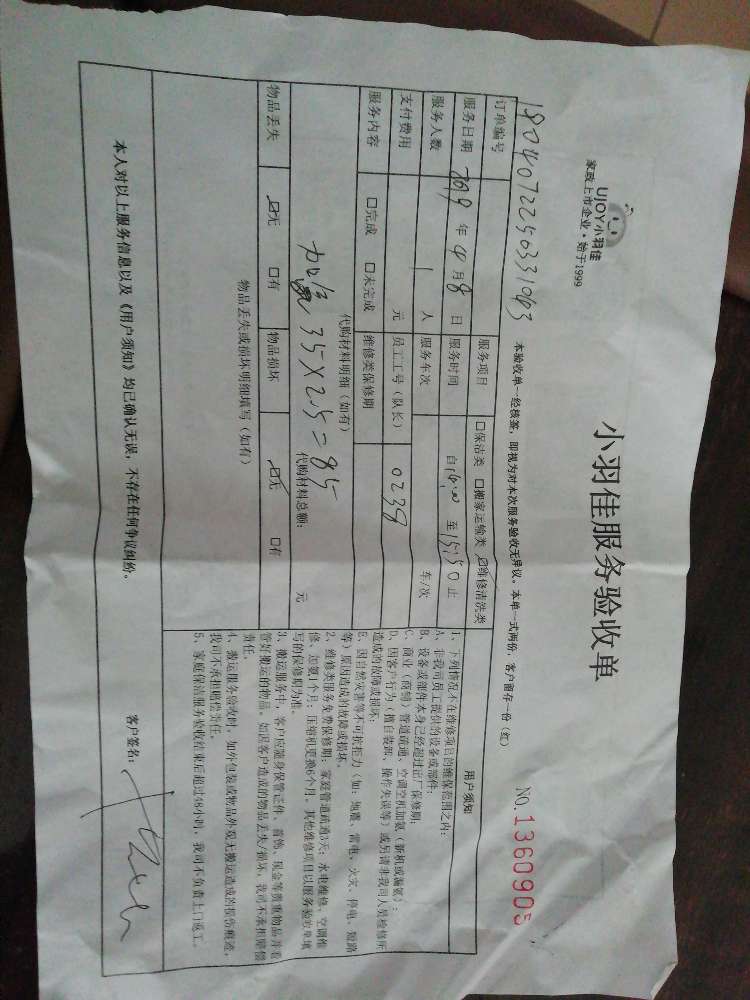 UJOY小羽佳
家政上市企业·始于1999
小羽佳服务验收单
NO.1360905
本验收单一经核签，即视为对本次服务验收无异议。本单一式两份，客户留存一份（红）
订单编号 1804072250331063 服务项目 □保洁类 □搬家运输类 ☑维修清洗类
服务日期 2019年4月8日 服务时间 自14:00至15:50止
服务人数 1人 服务车次 车/次
支付费用 元 员工工号（队长） 0238
服务内容 □完成 □未完成 维修类保修期
代购材料明细（如有）
35×2.5=85
代购材料总额： 元
物品丢失 ☑无 □有 物品损坏 ☑无 □有
物品丢失或损坏明细填写（如有）
用户须知
1、下列情况不在维修项目的维保范围之内：
A、非我司员工提供的设备或部件；
B、设备或部件本身已经超过出厂保修期；
C、商业（商铺）管道疏通、空调空机加氨（新机或漏氨）；
D、因客户行为（擅自装卸、操作失误等）或另请非我司人员检修所
造成的故障或损坏；
E、因自然灾害等不可抗拒力（如：地震、雷电、火灾、停电、短路
等）原因造成的故障或损坏。
2、维修类服务免费保修期：家庭管道疏通3天；水电维修、空调维
修、加氨1个月；压缩机更换6个月。其他维修项目以服务验收单填
写的保修期为准。
3、搬运服务中，客户应随身保管证件、首饰、现金等贵重物品并看
管好搬运的物品。如因客户造成的物品丢失/损坏，我司不承担赔偿
责任。
4、搬运服务验收时，如外包装或物品外观无搬运造成的损伤痕迹，
我司不承担赔偿责任。
5、家庭保洁服务验收结束后超过48小时，我司不负责上门返工。
本人对以上服务信息以及《用户须知》均已确认无误，不存在任何争议纠纷。
客户签名：